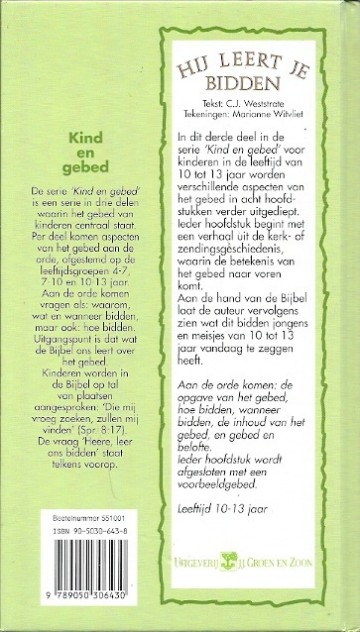 Kind
en
gebed
De serie 'Kind en gebed'
is een serie in drie delen
waarin het gebed van
kinderen centraal staat.
Per deel komen aspecten
van het gebed aan de
orde, afgestemd op de
leeftijdsgroepen 4-7,
7-10 en 10-13 jaar.
Aan de orde komen
vragen als: waarom,
wat en wanneer bidden,
maar ook: hoe bidden.
Uitgangspunt is dat wat
de Bijbel ons leert over
het gebed.
Kinderen worden in
de Bijbel op tal
van plaatsen
aangesproken: 'Die mij
vroeg zoeken, zullen mij
vinden' (Spr. 8:17).
De vraag 'Heere, leer
ons bidden' staat
telkens voorop.
Bestelnummer 551001
ISBN 90-5030-643-8
9 789050 306430
HIJ LEERT JE
BIDDEN
Tekst: C.J. Weststrate
Tekeningen: Marianne Witvliet
In dit derde deel in de
serie 'Kind en gebed' voor
kinderen in de leeftijd van
10 tot 13 jaar worden
verschillende aspecten van
het gebed in acht hoofd-
stukken verder uitgediept.
Ieder hoofdstuk begint met
een verhaal uit de kerk- of
zendingsgeschiedenis,
waarin de betekenis van
het gebed naar voren
komt.
Aan de hand van de Bijbel
laat de auteur vervolgens
zien wat dit bidden jongens
en meisjes van 10 tot 13
jaar vandaag te zeggen
heeft.
Aan de orde komen: de
opgave van het gebed,
hoe bidden, wanneer
bidden, de inhoud van het
gebed, en gebed en
belofte.
Ieder hoofdstuk wordt
afgesloten met een
voorbeeldgebed.
Leeftijd 10-13 jaar
UITGEVERIJ J.J. GROEN EN ZOON